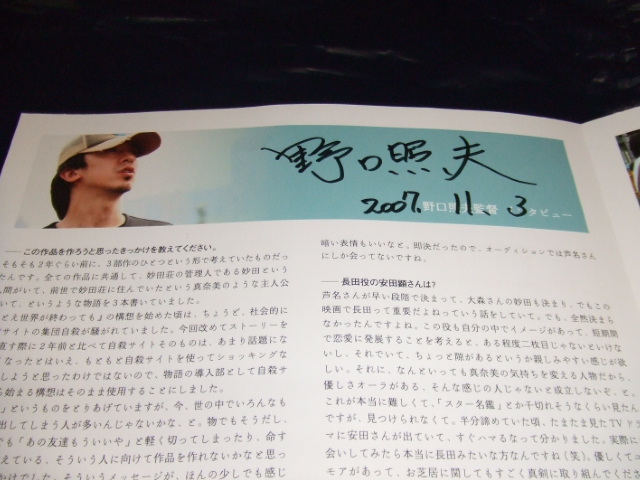 野口照夫
2007. 11. 3
野口照夫監督 インタビュー
――この作品を作ろうと思ったきっかけを教えてください。
そもそも2年ぐらい前に、3部作のひとつという形で考えていたものだっ
たんです。全ての作品に共通して、妙田荘の管理人である妙田という
人間がいて、前世で妙田荘に住んでいたという真奈美のような主人公
いて、というような物語を3本書いていました。
とえ世界が終わっても」の構想を始めた頃は、ちょうど、社会的に
サイトの集団自殺が騒がれていました。今回改めてストーリーを
直す際に2年前と比べて自殺サイトそのものは、あまり話題にな
くなったとはいえ、もともと自殺サイトを使ってショッキングな
しようと思ったわけではないので、物語の導入部として自殺サイ
ら始まる構想はそのまま使用することにしました。
」というものをとりあげていますが、今、世の中でいろんなも
出してしまう人が多いんじゃないかな、と。物でもそうだし、
でも「あの友達もういいや」と軽く切ってしまったり、命す
えている、そういう人に向けて作品を作れないかなと思っ
かけでした。そういうメッセージが、ほんの少しでも感じ
暗い表情もいいなと。即決だったので、オーディションでは芦名さん
にしか会ってないですね。
――長田役の安田顕さんは?
芦名さんが早い段階で決まって、大森さんの妙田も決まり、でもこの
映画で長田って重要だよねっていう話をしていて。でも、全然決まら
なかったんですよね。この役も自分の中でイメージがあって、短期間
で恋愛に発展することを考えると、ある程度二枚目じゃないといけな
いし、それでいて、ちょっと隙があるというか親しみやすい感じが欲
しい。それに、なんといっても真奈美の気持ちを変える人物だから、
優しさオーラがある、そんな感じの人じゃないと成立しないぞ、と。
これが本当に難しくて、「スター名鑑」とか千切れそうなくらい見たん
ですが、見つけられなくて。半分諦めていた頃、たまたま見たTVドラ
マに安田さんが出ていて、すぐハマるなって分かりました。実際に
会いしてみたら本当に長田みたいな方なんですね(笑)。優しくてユ
モアがあって、お芝居に関してもすごく真剣に取り組んでくださ